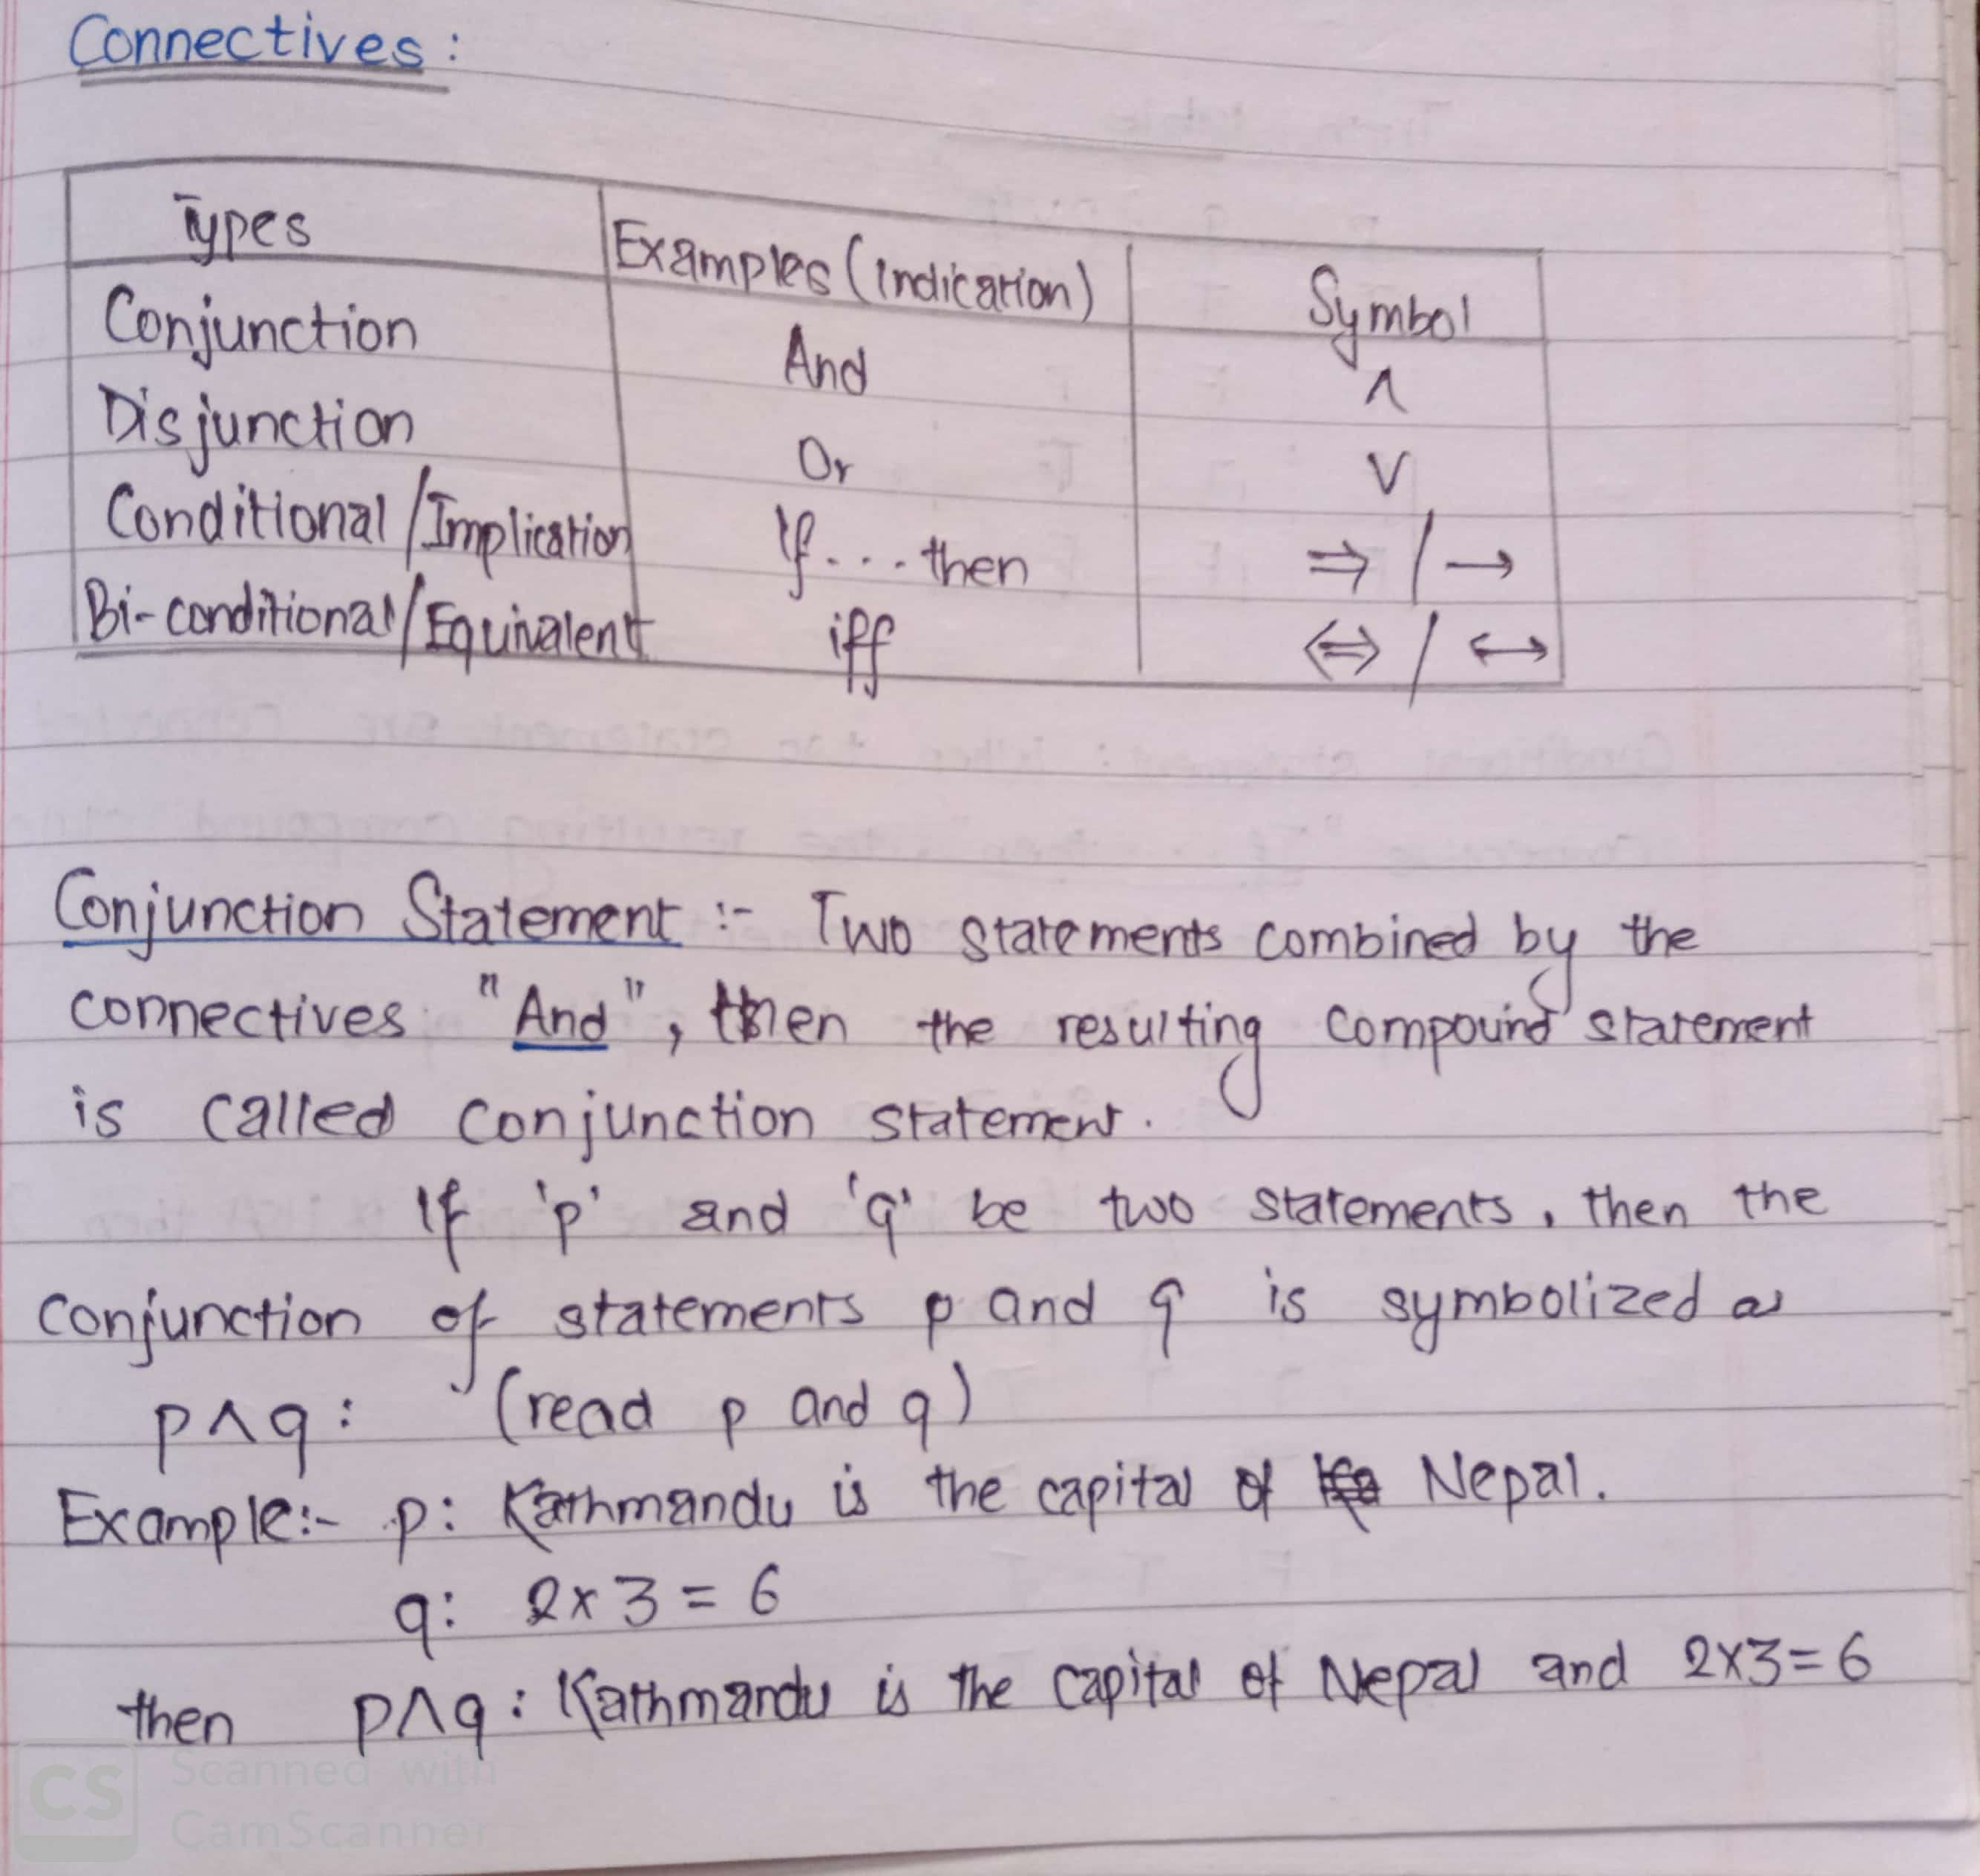 Connectives:
Types Examples (indication) Symbol
Conjunction And ∧
Disjunction Or ∨
Conditional/Implication If....then ⇒/→
Bi-conditional/Equivalent iff ⇔/↔
Conjunction Statement :- Two statements combined by the
connectives "And", then the resulting compound statement
is called conjunction statement.
If 'p' and 'q' be two statements, then the
conjunction of statements p and q is symbolized as
p∧q: (read p and q)
Example:- p: Kathmandu is the capital of Nepal.
q: 2×3=6
then p∧q: Kathmandu is the capital of Nepal and 2×3=6
CS Scanned with
CamScanner